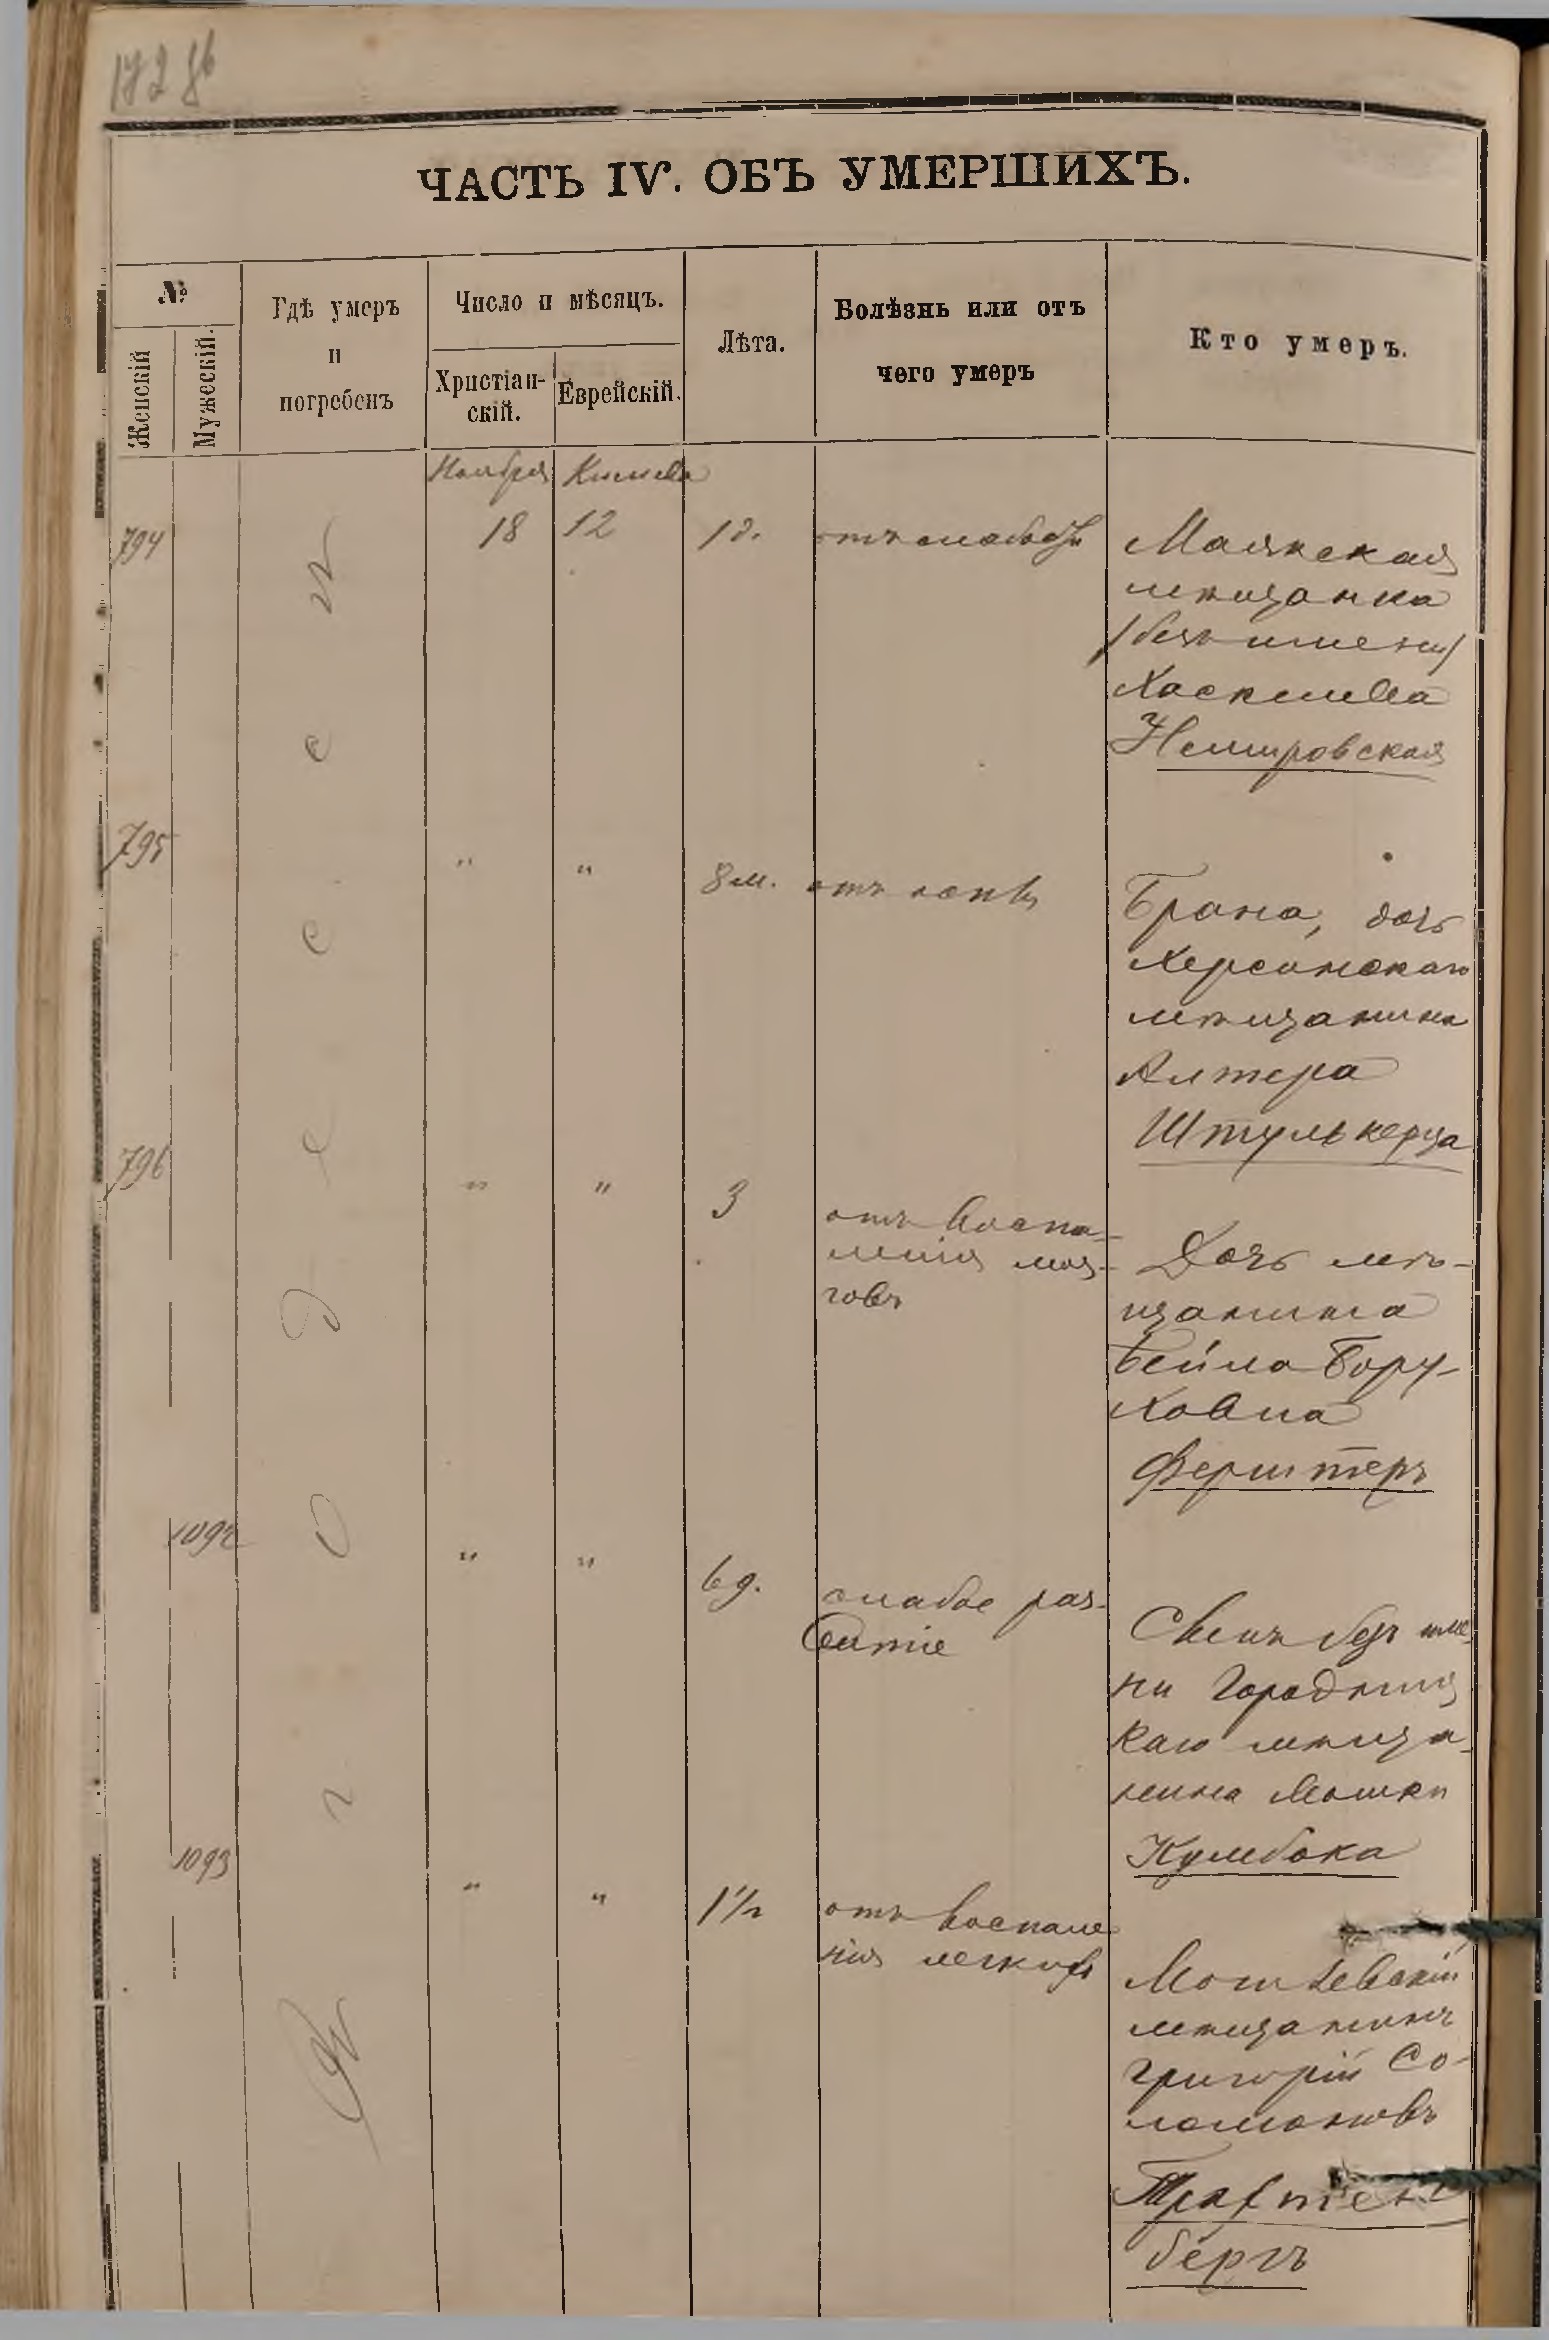 ЧАСТЬ IV. ОБЪ УМЕРШИХЪ.
№
Женскій
Мужескій.
Гдѣ умеръ
и
погребенъ
Число и мѣсяцъ.
Христіан-
скій.
Еврейскій.
Лѣта.
Болѣзнь или отъ
чего умеръ
Кто умеръ.
Ноября Кислева
794 18 12 1 д. отъ слабости
Маякская
мѣщанка
/безъ имени/
Хаскелева
Немировская
795 " " 8 м. отъ оспы
Брана, дочь
Херсонскаго
мѣщанина
Алтера
Штулькерца
796 " " 3 отъ воспа-
ленія моз-
говъ
Дочь мѣ-
щанина
Бейла Бору-
ховна
Ферштеръ
1092 " " 6 д. слабое раз-
витіе
Сынъ безъ име-
ни Городниц
каго мѣща-
нина Мошки
Кулбака
1093 " " 1½ отъ воспале
нія легкихъ
Могилевскій
мѣщанинъ
Григорій Со-
ломоновъ
Трахтен
бергъ
Въ г. Одессѣ